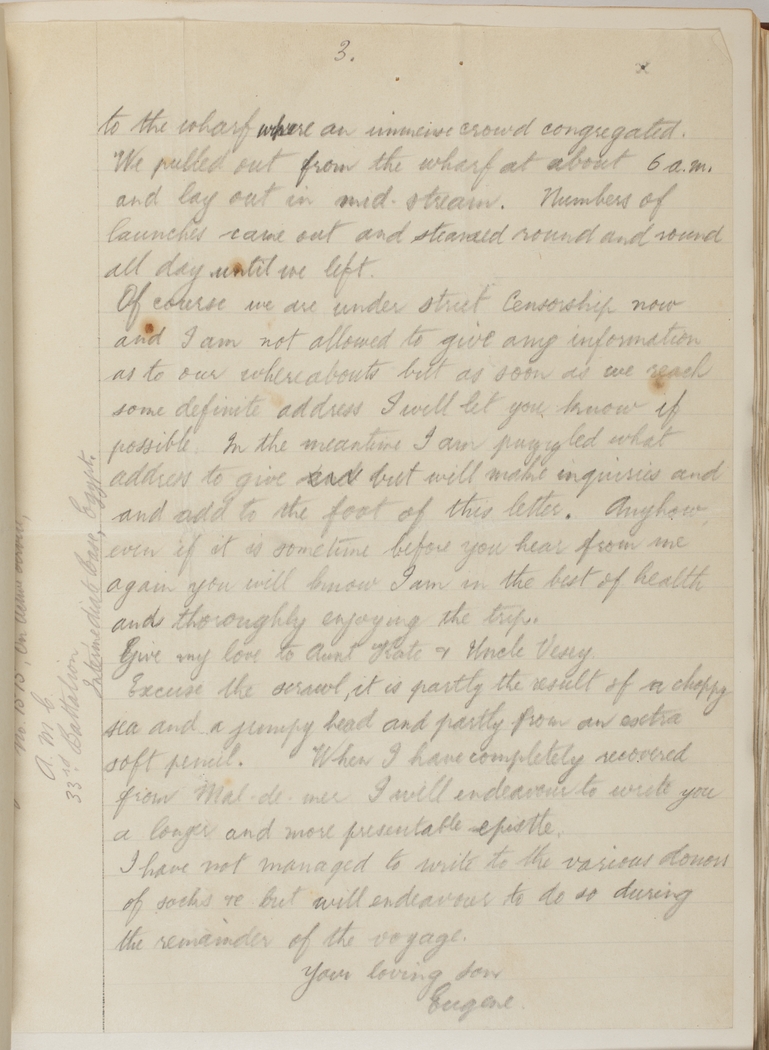 3.
to the wharf where an immense crowd congregated.
We pulled out from the wharf at about 6 a.m.
and lay out in mid-stream. Numbers of
launches came out and steamed round and round
all day until we left.
Of course we are under strict Censorship now
and I am not allowed to give any information
as to our whereabouts but as soon as we reach
some definite address I will let you know if
possible. In the meantime I am puzzled what
address to give and but will make inquiries and
and add to the foot of this letter. Anyhow,
even if it is sometime before you hear from me
again you will know I am in the best of health
and thoroughly enjoying the trip.
Give my love to Aunt Kate & Uncle Vesey.
Excuse the scrawl, it is partly the result of a choppy
sea and a jumpy head and partly from an extra
soft pencil. When I have completely recovered
from Mal-de-mer I will endeavour to write you
a longer and more presentable epistle.
I have not managed to write to the various donors
of socks &c but will endeavour to do so during
the remainder of the voyage.
Your loving son
Eugene.
A. M. C.
33rd Battalion,
Intermediate Base, Egypt.